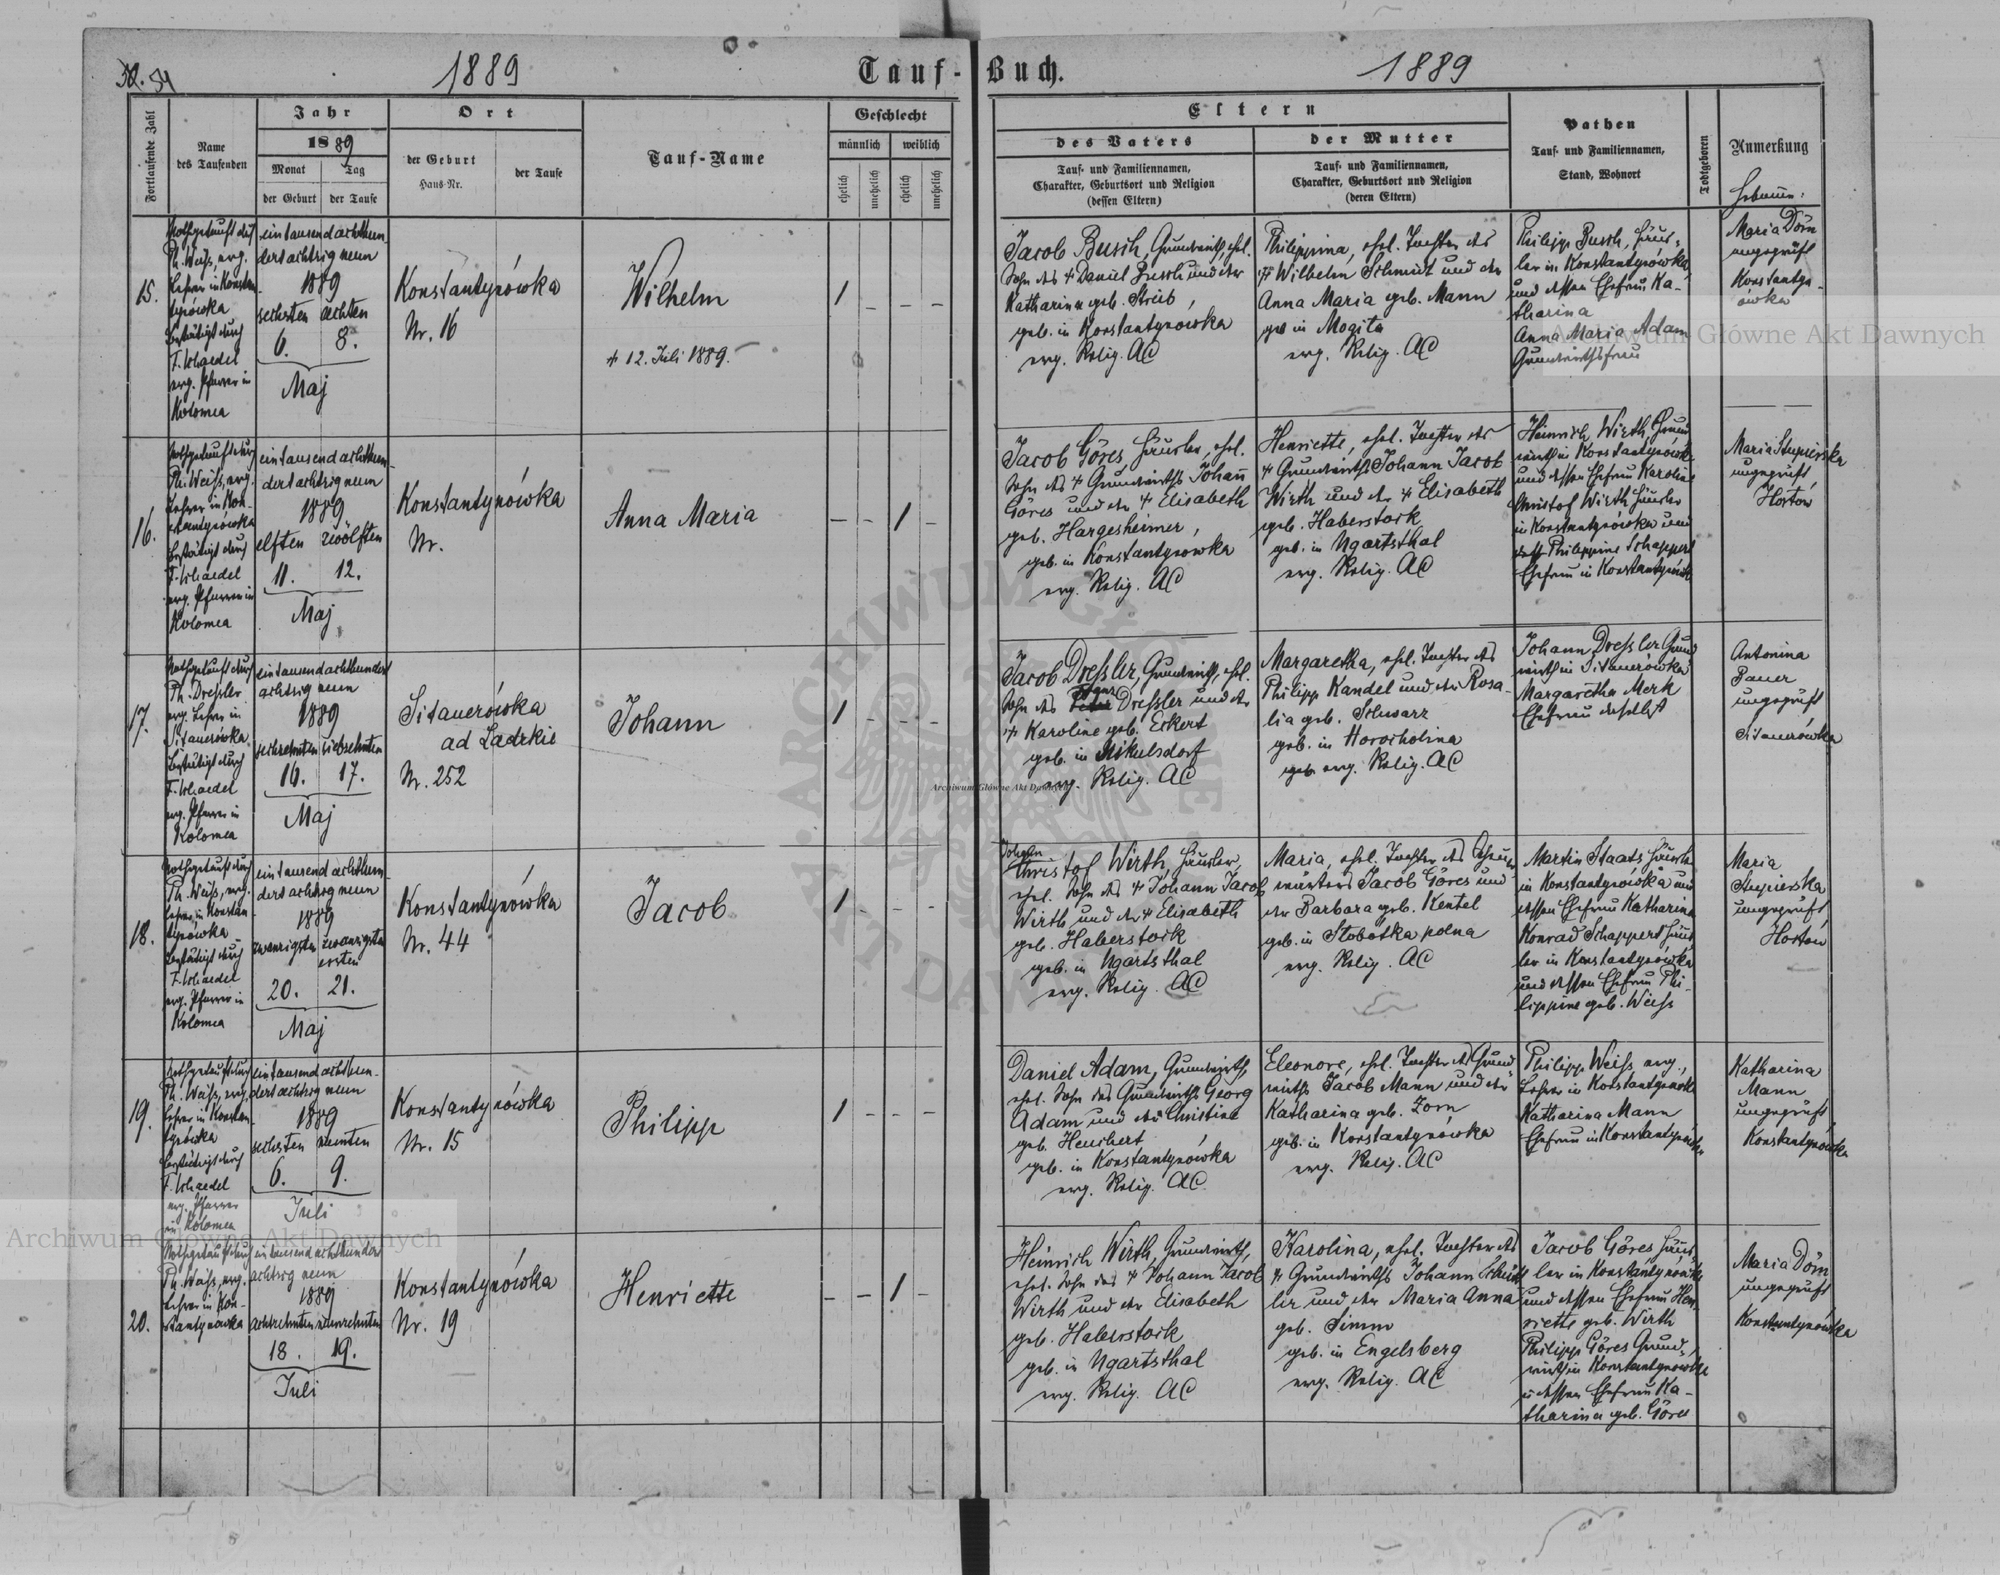 1889
Tauf-Buch.
1889
Fortlaufende Zahl
Name
des Taufenden
Jahr
1889
Monat
Tag
der Geburt
der Taufe
Ort
der Geburt
Haus-Nr.
der Taufe
Tauf-Name
Geschlecht
männlich
weiblich
ehelich
unehelich
ehelich
unehelich
Eltern
des Vaters
Tauf- und Familiennamen,
Charakter, Geburtsort und Religion
(dessen Eltern)
der Mutter
Tauf- und Familiennamen,
Charakter, Geburtsort und Religion
(deren Eltern)
Pathen
Tauf- und Familiennamen,
Stand, Wohnort
Todtgeboren
Anmerkung
Hebamme:
15.
Nothgetauft durch
Ph. Weiss, evg.
Lehrer in Konstan-
tynówka
bestätigt durch
evg. Pfarrer in
Kolomea
eintausendachthun-
dertachtzigneun
1889
sechsten achten
6. 8.
Maj
Konstantynówka
Nr. 16
Wilhelm
† 12. Juli 1889.
1 - - -
Jacob Busch, Grundwirth, ehel.
Sohn des † Daniel Busch und der
Katharina geb. Streib,
geb. in Konstantynówka
evg. Relig. AC
Philippina, ehel. Tochter des
† Wilhelm Schmidt und der
Anna Maria geb. Mann
geb in Mogila
evg. Relig. AC
Philipp Busch, Häus-
ler in Konstantynówka
und dessen Ehefrau Ka-
tharina
Anna Maria Adam
Grundwirthsfrau
Maria Dörn
ungeprüft
Konstantyn-
ówka
16.
Nothgetauft durch
Ph. Weiss, evg.
Lehrer in Kon-
stantynówka
bestätigt durch
evg. Pfarrer in
Kolomea
eintausendachthun-
dertachtzigneun
1889
elften zwölften
11. 12.
Maj
Konstantynówka
Nr.
Anna Maria
- - 1 -
Jacob Göres Häusler, ehel.
Sohn des † Grundwirths Johann
Göres und der † Elisabeth
geb. Hargesheimer,
geb. in Konstantynówka
evg. Relig. AC
Henriette, ehel. Tochter des
† Grundwirths Johann Jacob
Wirth und der † Elisabeth
geb. Haberstock
geb. in Ugartsthal
evg. Relig. AC
Heinrich Wirth, Grund-
wirth in Konstantynówka
und dessen Ehefrau Karoline
Christof Wirth Häusler
in Konstantynówka und
dess. Philippine Schappert
Ehefrau in Konstantynówk
Maria Stupierska
ungeprüft
Hortów
17.
Nothgetauft durch
Ph. Dressler
evg. Lehrer in
Sitauerówka
bestätigt durch
evg. Pfarrer in
Kolomea
eintausendachthundert
achtzig neun
1889
sechzehnten siebzehnten
16. 17.
Maj
Sitauerówka
ad Ladzkie
Nr. 252
Johann
1 - - -
Jacob Dressler, Grundwirth, ehel.
Sohn des Dressler und der
† Karoline geb. Eckert
geb. in Mikulsdorf
evg. Relig. AC
Margaretha, ehel. Tochter des
Philipp Kandel und der Rosa-
lia geb. Schwarz
geb. in Horocholina
evg. Relig. AC
Johann Dressler Grund
wirth in Sitauerówka
Margaretha Merk
Ehefrau daselbst
Antonina
Bauer
ungeprüft
Sitauerówka
18.
Nothgetauft durch
Ph. Weiss, evg.
Lehrer in Konstan-
tynówka
bestätigt durch
evg. Pfarrer in
Kolomea
eintausend achthun-
dertachtzigneun
1889
zwanzigsten zwanzigsten
ersten
20. 21.
Maj
Konstantynówka
Nr. 44
Jacob
1 - - -
Johann
Christof Wirth, Häusler,
ehel. Sohn des † Johann Jacob
Wirth und der † Elisabeth
geb. Haberstock
geb. in Ugartsthal
evg. Relig. AC
Maria, ehel. Tochter des
Jacob Göres und
der Barbara geb. Kentel
geb. in Slobotka polna
evg. Relig. AC
Martin Staats Häusler
in Konstantynówka und
dessen Ehefrau Katharina
Konrad Schappert Häus-
ler in Konstantynówka
und dessen Ehefrau Phi-
lippine geb. Weiss
Maria
Stupierska
ungeprüft
Hortów
19.
Nothgetauft durch
Ph. Weiss, evg.
Lehrer in Konstan-
tynówka
bestätigt durch
evg. Pfarrer
in Kolomea
eintausend achthun-
dertachtzig neun
1889
sechsten neunten
6. 9.
Juli
Konstantynówka
Nr. 15
Philipp
1 - - -
Daniel Adam, Grundwirth,
ehel. Sohn des Grundwirths Georg
Adam und der Christine
geb. Heuchert
geb. in Konstantynówka
evg. Relig. AC
Eleonore, ehel. Tochter des Grund-
wirths Jacob Mann und der
Katharina geb. Zorn
geb. in Konstantynówka
evg. Relig. AC
Philipp Weiss evg.,
Lehrer in Konstantynówka
Katharina Mann
Ehefrau in Konstantynówka
Katharina
Mann
ungeprüft
Konstantynówka
20.
Nothgetauft durch
Ph. Weiss, evg.
Lehrer in Kon-
stantynówka
eintausendachthundert
achtzig neun
1889
achtzehnten neunzehnten
18. 19.
Juli
Konstantynówka
Nr. 19
Henriette
- - 1 -
Heinrich Wirth, Grundwirth,
ehel. Sohn des † Johann Jacob
Wirth und der Elisabeth
geb. Haberstock
geb. in Ugartsthal
evg. Relig. AC
Karolina, ehel. Tochter des
† Grundwirths Johann
und der Maria Anna
geb. Simm
geb. in Engelsberg
evg. Relig. AC
Jacob Göres Häus-
ler in Konstantynówka
und dessen Ehefrau Hen-
riette geb. Wirth
Philipp Göres Grund-
wirth in Konstantynówka
u dessen Ehefrau Ka-
tharina geb. Göres
Maria Dörn
ungeprüft
Konstantynówka
Archiwum Główne Akt Dawnych
Archiwum Główne Akt Dawnych
Archiwum Główne Akt Dawnych